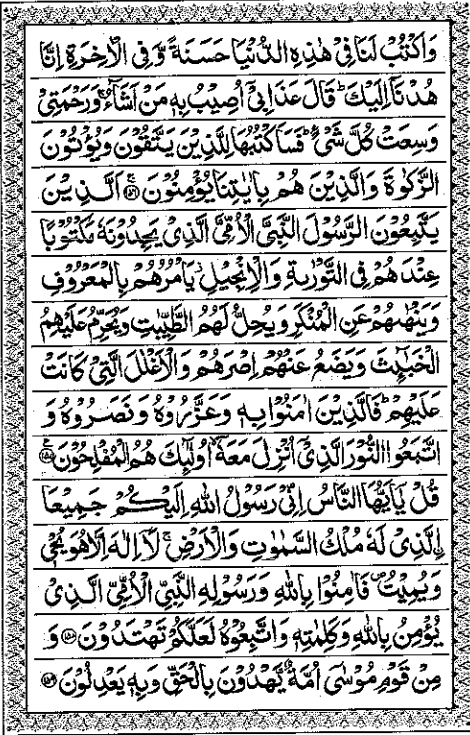 وَاكْتُبْ لَنَا فِيْ هٰذِهِ الدُّنْيَا حَسَنَةً وَّفِي الْاٰخِرَةِ اِنَّا
هُدْنَاۤ اِلَيْكَ ؕ قَالَ عَذَابِيْۤ اُصِيْبُ بِهٖ مَنْ اَشَآءُ ۚ وَرَحْمَتِيْ
وَسِعَتْ كُلَّ شَيْءٍ ؕ فَسَاَكْتُبُهَا لِلَّذِيْنَ يَتَّقُوْنَ وَيُؤْتُوْنَ
الزَّكٰوةَ وَالَّذِيْنَ هُمْ بِاٰيٰتِنَا يُؤْمِنُوْنَ ۚ﴿۱۵۶﴾ اَلَّذِيْنَ
يَتَّبِعُوْنَ الرَّسُوْلَ النَّبِيَّ الْاُمِّيَّ الَّذِيْ يَجِدُوْنَهٗ مَكْتُوْبًا
عِنْدَهُمْ فِي التَّوْرٰىةِ وَالْاِنْجِيْلِ ؗ يَاْمُرُهُمْ بِالْمَعْرُوْفِ
وَيَنْهٰىهُمْ عَنِ الْمُنْكَرِ وَيُحِلُّ لَهُمُ الطَّيِّبٰتِ وَيُحَرِّمُ عَلَيْهِمُ
الْخَبٰٓئِثَ وَيَضَعُ عَنْهُمْ اِصْرَهُمْ وَالْاَغْلٰلَ الَّتِيْ كَانَتْ
عَلَيْهِمْ ؕ فَالَّذِيْنَ اٰمَنُوْا بِهٖ وَعَزَّرُوْهُ وَنَصَرُوْهُ وَ
اتَّبَعُوا النُّوْرَ الَّذِيْۤ اُنْزِلَ مَعَهٗۤ ۙ اُولٰٓئِكَ هُمُ الْمُفْلِحُوْنَ ﴿۱۵۷﴾
قُلْ يٰۤاَيُّهَا النَّاسُ اِنِّيْ رَسُوْلُ اللّٰهِ اِلَيْكُمْ جَمِيْعَا
ۨالَّذِيْ لَهٗ مُلْكُ السَّمٰوٰتِ وَالْاَرْضِ ۚ لَاۤ اِلٰهَ اِلَّا هُوَ يُحْيٖ
وَيُمِيْتُ ۪ فَاٰمِنُوْا بِاللّٰهِ وَرَسُوْلِهِ النَّبِيِّ الْاُمِّيِّ الَّذِيْ
يُؤْمِنُ بِاللّٰهِ وَكَلِمٰتِهٖ وَاتَّبِعُوْهُ لَعَلَّكُمْ تَهْتَدُوْنَ ﴿۱۵۸﴾ وَ
مِنْ قَوْمِ مُوْسٰۤى اُمَّةٌ يَّهْدُوْنَ بِالْحَقِّ وَبِهٖ يَعْدِلُوْنَ ﴿۱۵۹﴾